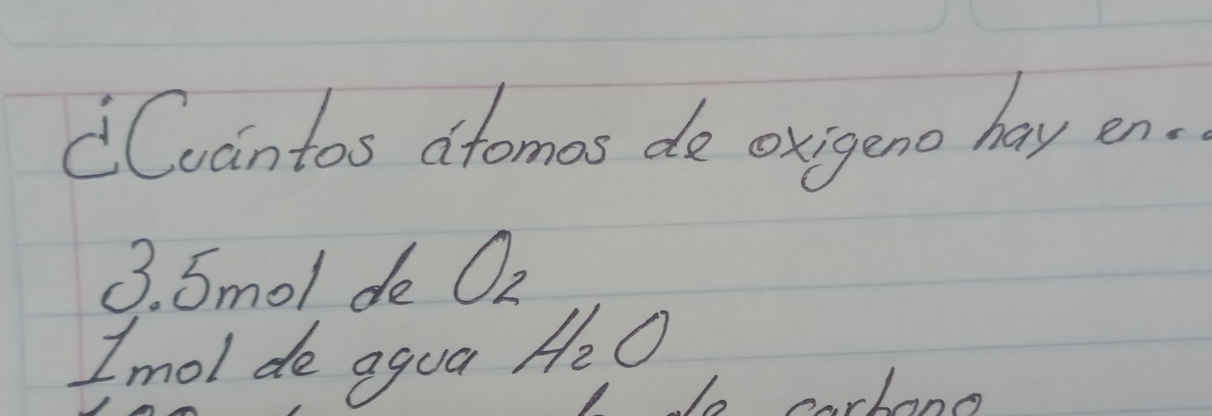 ¿Cuántos átomos de oxigeno hay en..
3.5mol de O₂
1mol de agua H₂O
de carbono